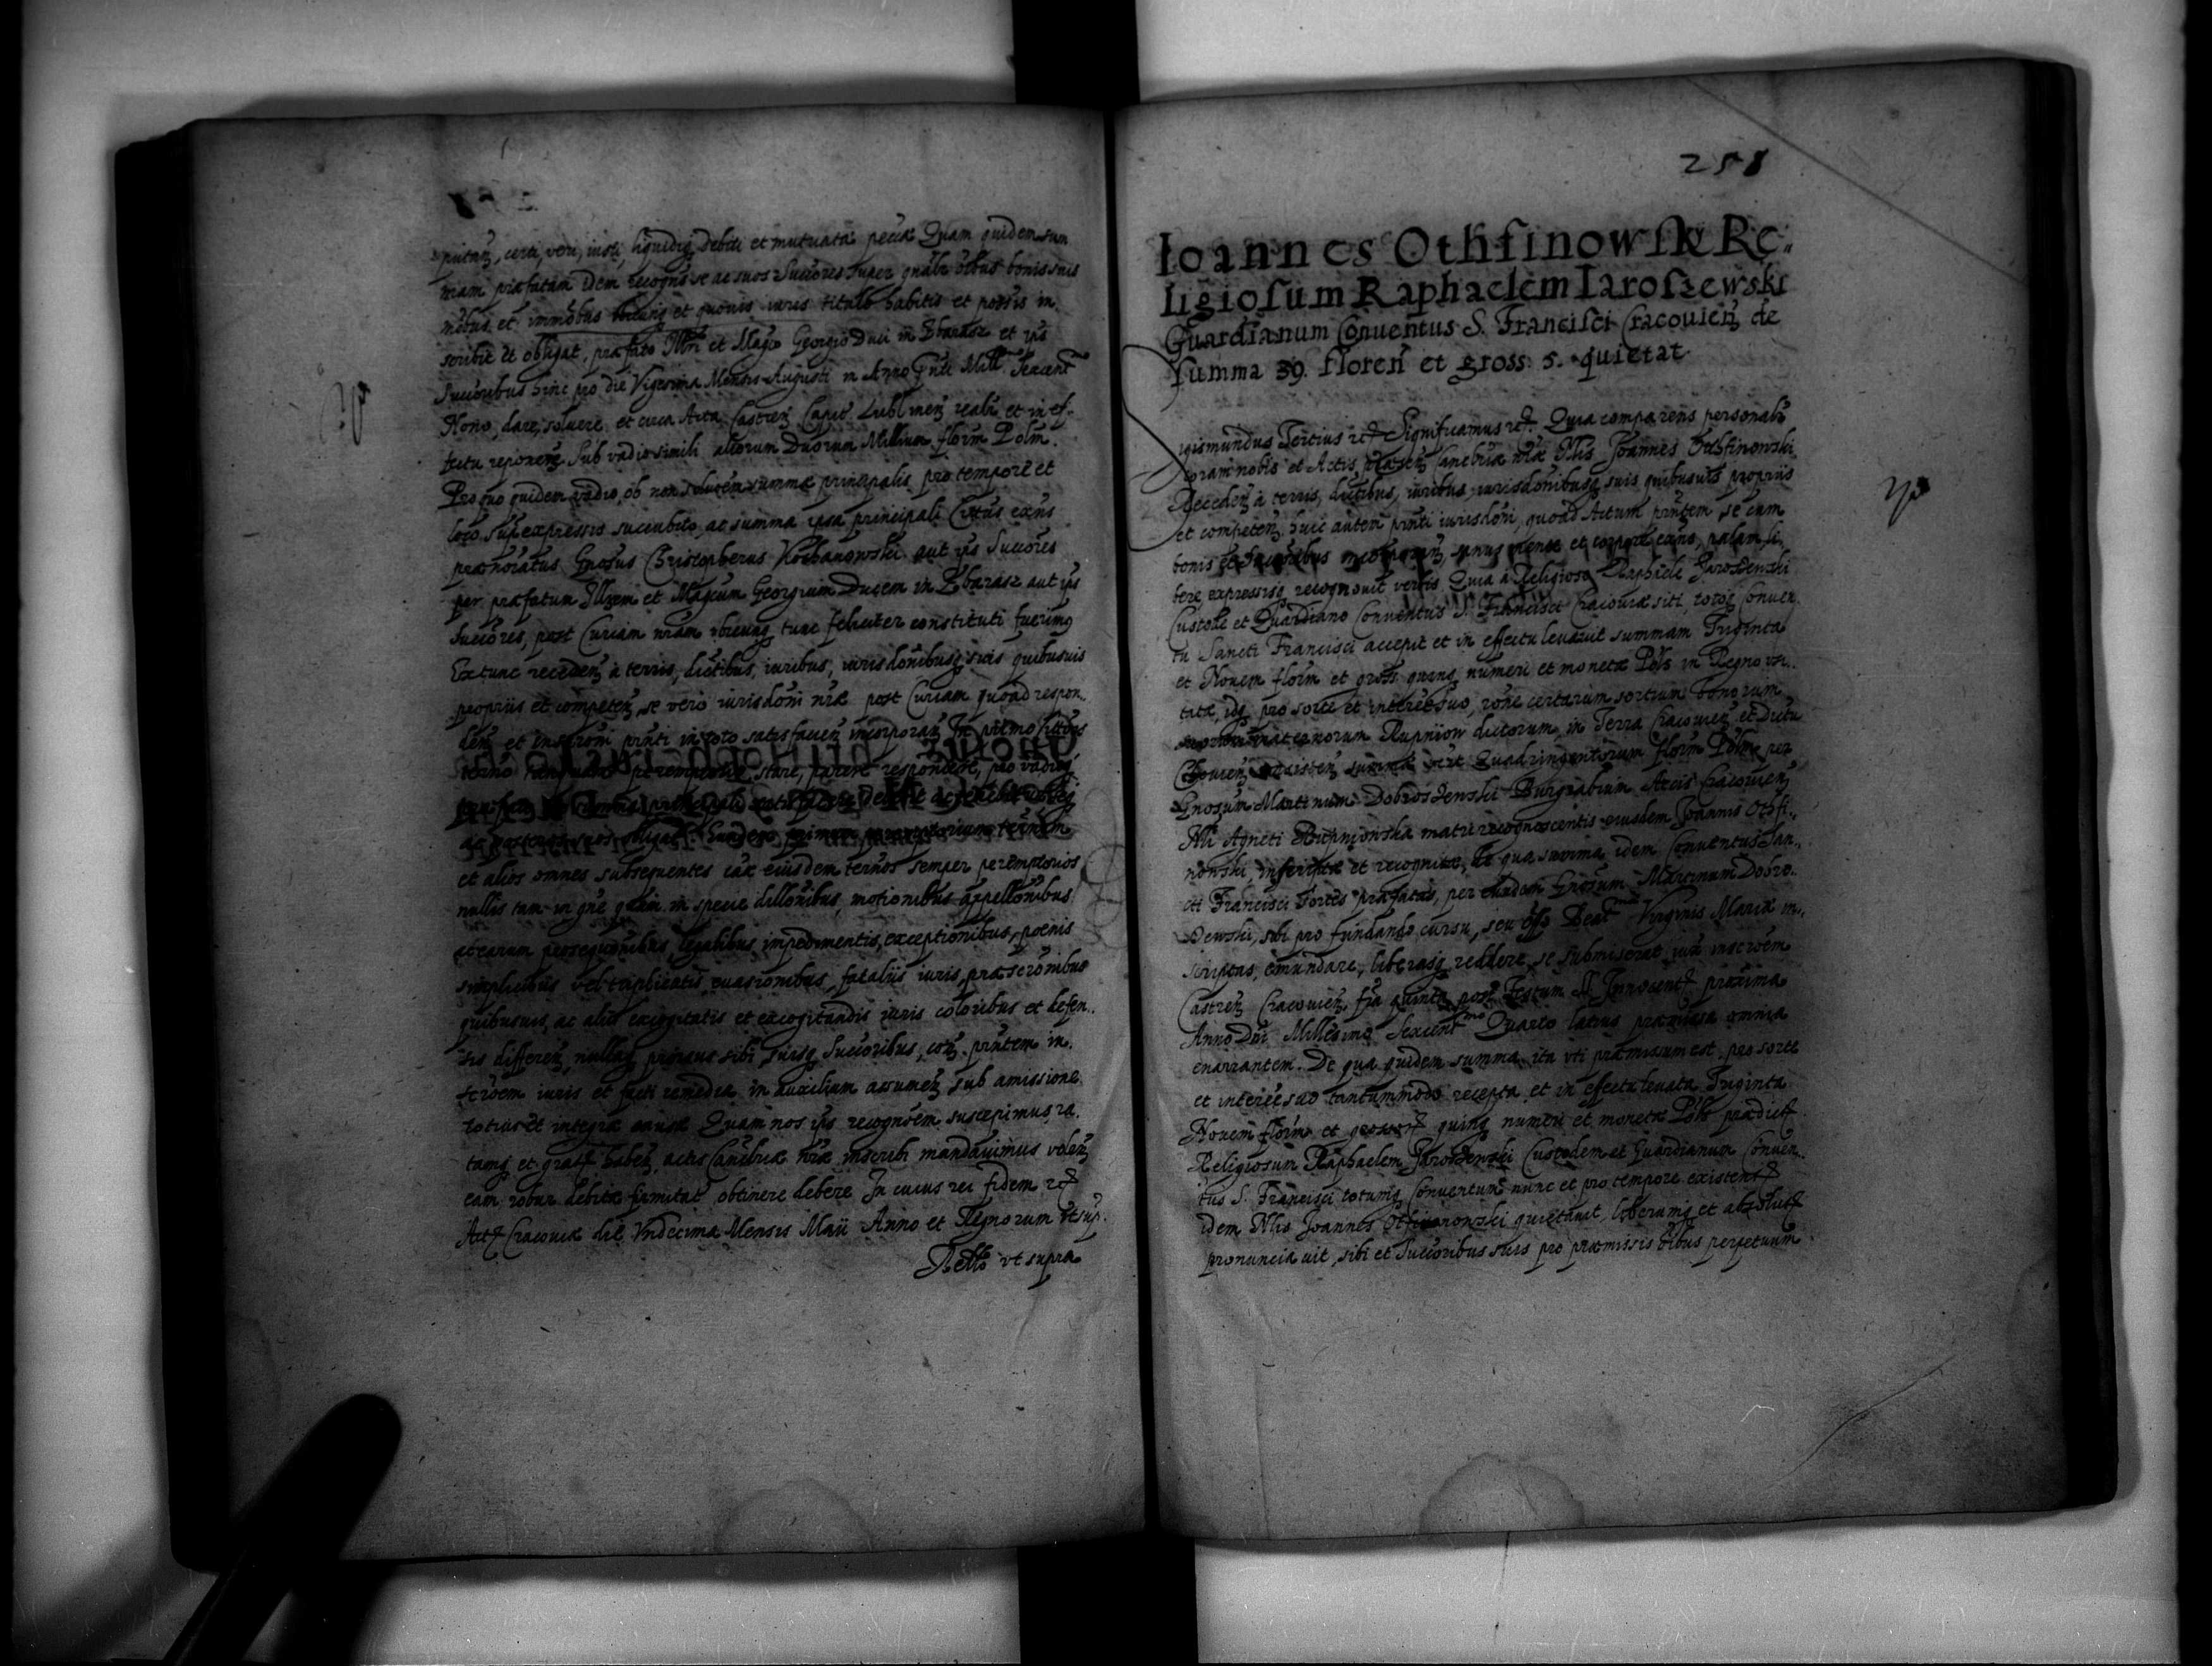 putan, certi, veri, iusti, liquidiq debiti et mutuatæ pecuæ Quam quidem sum
mam præfatam idem recogns se ac suos Succores super gnalr oibus bonis suis
mobibus et immobibus vbicunq et quouis iuris titulo habitis et possis in
scribit et obligat, præfato Illri et Magco Georgio Duci in Zbarasz et ips
Succoribus hinc pro die Vigesima Mensis Augusti in Anno Millmo Sexcentmo
Nono, dare, soluere et circa Acta Castren Capit Lublinen realr et in ef-
fectu reponere Sub vadio simili aliorum Duorum Millium florm Polm.
Pro quo quidem vadio, ob non solutem summæ principalis pro tempore et
loco supexpressis succubito, ac summa ipsa principali Citatus exns
prænoiatus Gnosus Christopherus Kochanowski aut ips Succores
per præfatum Illrem et Magcum Georgium Ducem in Zbarasz aut ips
Succores, post Curiam nram vbicunq tunc feliciter constituti fuerimq
Extunc receden à terris, dictibus, iuribus, iurisdonibusq suis quibusuis
propriis et competen, se vero iurisdoni nræ post Curiam quoad respon-
den et inscrõni pnti in toto satisfacien incorporan In primo Citõis
termo tanquam peremptorio, stare, parere respondere, pro vadioq
ac nostros suos obligat Eundem primum peremptorium terminum
et alios omnes subsequentes cãæ eiusdem ternos semper peremptorios
nullis tam in gne quam in specie dillonibus, motionibus appellonibus
ac earum prosequonibus, legalibus impedimentis, exceptionibus, pœnis
simplicibus vel triplicatis euasionibus, fataliis iuris, præscronibus
quibusuis, ac aliis excogitatis et excogitandis iuris coloribus et defen-
sis differen, nullaq prorsus sibi suisq Succoribus, con pntem in-
scrõem iuris et facti remedia in auxilium assumen sub amissione
totius et integræ causæ Quam nos ips recognõem suscepimus, ra-
tamq et grat haben, actis Cancriæ nræ inscribi mandauimus volen
eam robur debitæ firmitat obtinere debere In cuius rei fidem etc
Act Cracouiæ die Vndecima Mensis Maii Anno et Regnorum vt sup.
Relatio vt supra
258
Ioannes Othfinowski Re-
ligiosum Raphaelem Iaroszewski
Guardianum Conuentus S. Francisci Cracouien de
Summa 39. floren et gross: 5. quietat
Sigismundus Tertius etc Significamus etc. Quia comparens personalr
coram nobis et Actis præsen Cancriæ nræ Nlis Joannes Othfinowski
Receden à terris, dictibus, iuribus, iurisdonibusq suis quibusuis propriis
et competen huic autem pnti iurisdoni, quoad Actum pntem, se cum
bonis et Succoribus incorporan, sanus mente et corpore exns, palam li-
bere expressisq recognouit verbis Quia à Religioso Raphaele Jaroszewski
Custode et Guardiano Conuentus S. Francisci Cracouiæ siti, totoq Conuen-
tu Sancti Francisci accepit et in effectu leuauit summam Triginta
et Nouem florm et gross quinq numeri et monetæ Pols in Regno vsi-
tatæ, idq pro sorte et interesse suo, rone certarum sortium bonorum
maternorum Rupniow dictorum, in Terra Cracouien et Dictu
Czchouien consisten summæ vizt Quadringentorum florm Polm per
Gnosum Martinum Dobroszewski Burgrabium Arcis Cracouien
Nli Agneti Rupniowska matri recognoscentis eiusdem Joannis Othfi-
nowski, inscriptæ et recognitæ, de qua summa idem Conuentus San-
cti Francisci sortes præfatas, per eundem Gnosum Martinum Dobro-
szewski, sibi pro fundando cursu, seu offo Beatmæ Virginis Mariæ in-
scriptas, emundare, liberasq reddere, se submiserat iux inscrõem
Castren Cracouien fria quinta post Festum SS. Innocent proxima
Anno Dni Millesimo Sexcentmo Quarto latius præmissa omnia
enarrantem. De qua quidem summa ita vti præmissum est, pro sorte
et interesse suo tantummodo recepta et in effectu leuata Triginta
Nouem florm et grossor quinq numeri et monetæ Pols prædict
Religiosum Raphaelem Jaroszewski Custodem et Guardianum Conuen-
tus S. Francisci totumq Conuentum nunc et pro tempore existent
idem Nlis Joannes quietauit, liberumq et absolut
pronunciauit, sibi et Succoribus suis pro præmissis oibus perpetuum